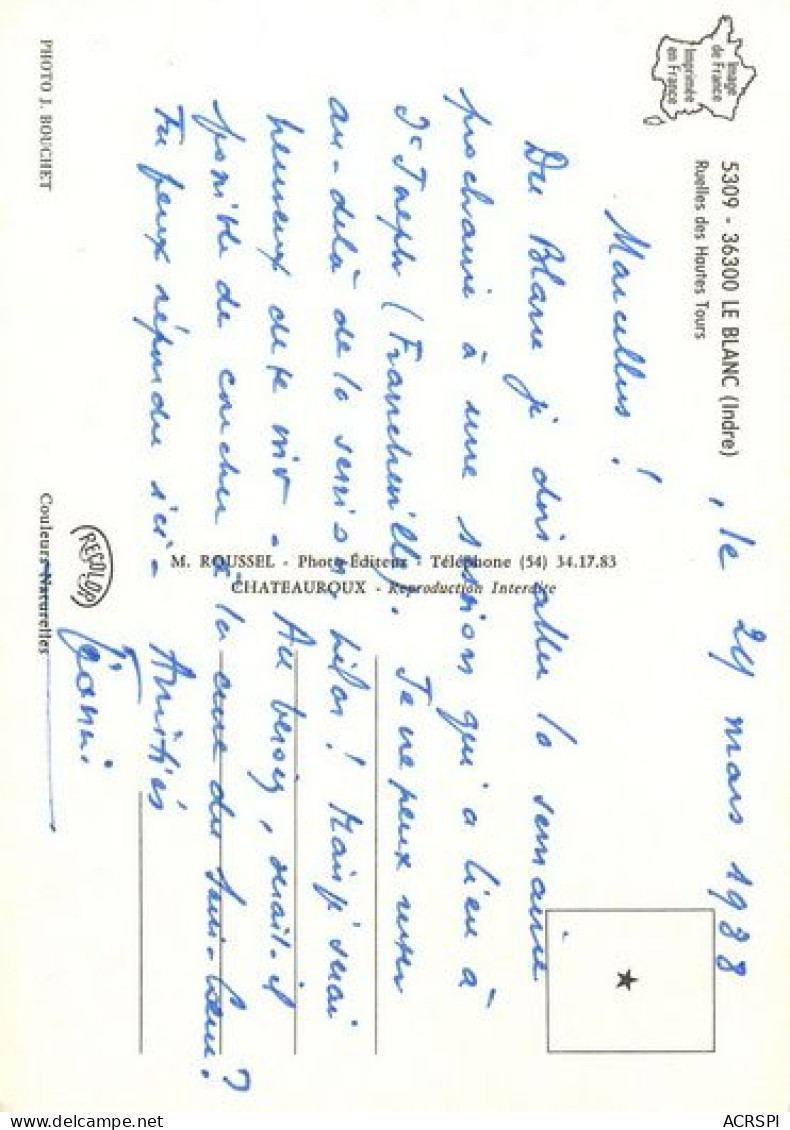 Image
de France
Imprimée
en France
5309 - 36300 LE BLANC (Indre)
Ruelles des Hautes Tours
, le 24 mars 1988
Marcellus !
Du Blanc je dois aller la semaine
prochaine à une session qui a lieu à
St Joseph (Francheville). Je ne peux
au-delà de la session, hélas ! Mais je serai
heureux de te voir. Au besoin, serait-il
possible de coucher à la cure du
Tu peux répondre ici - Amitiés
M. ROUSSEL - Photo-Éditeur - Téléphone (54) 34.17.83
CHATEAUROUX - Reproduction Interdite
RECOLOR
PHOTO J. BOUCHET
Couleurs Naturelles
ACRSPI